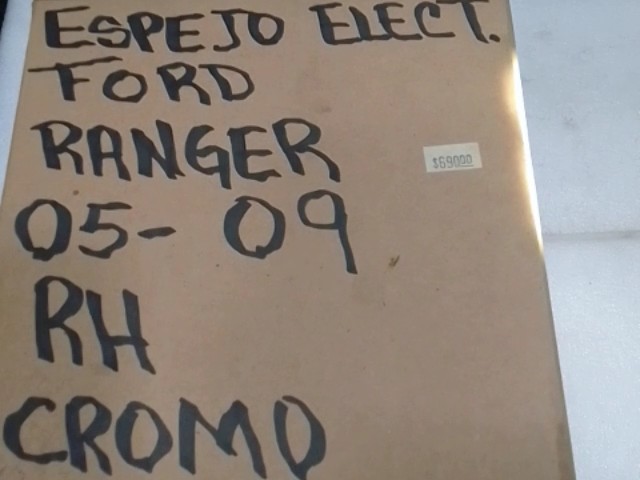 ESPEJO ELECT.
FORD
RANGER
$690.00
05-09
RH
CROMO